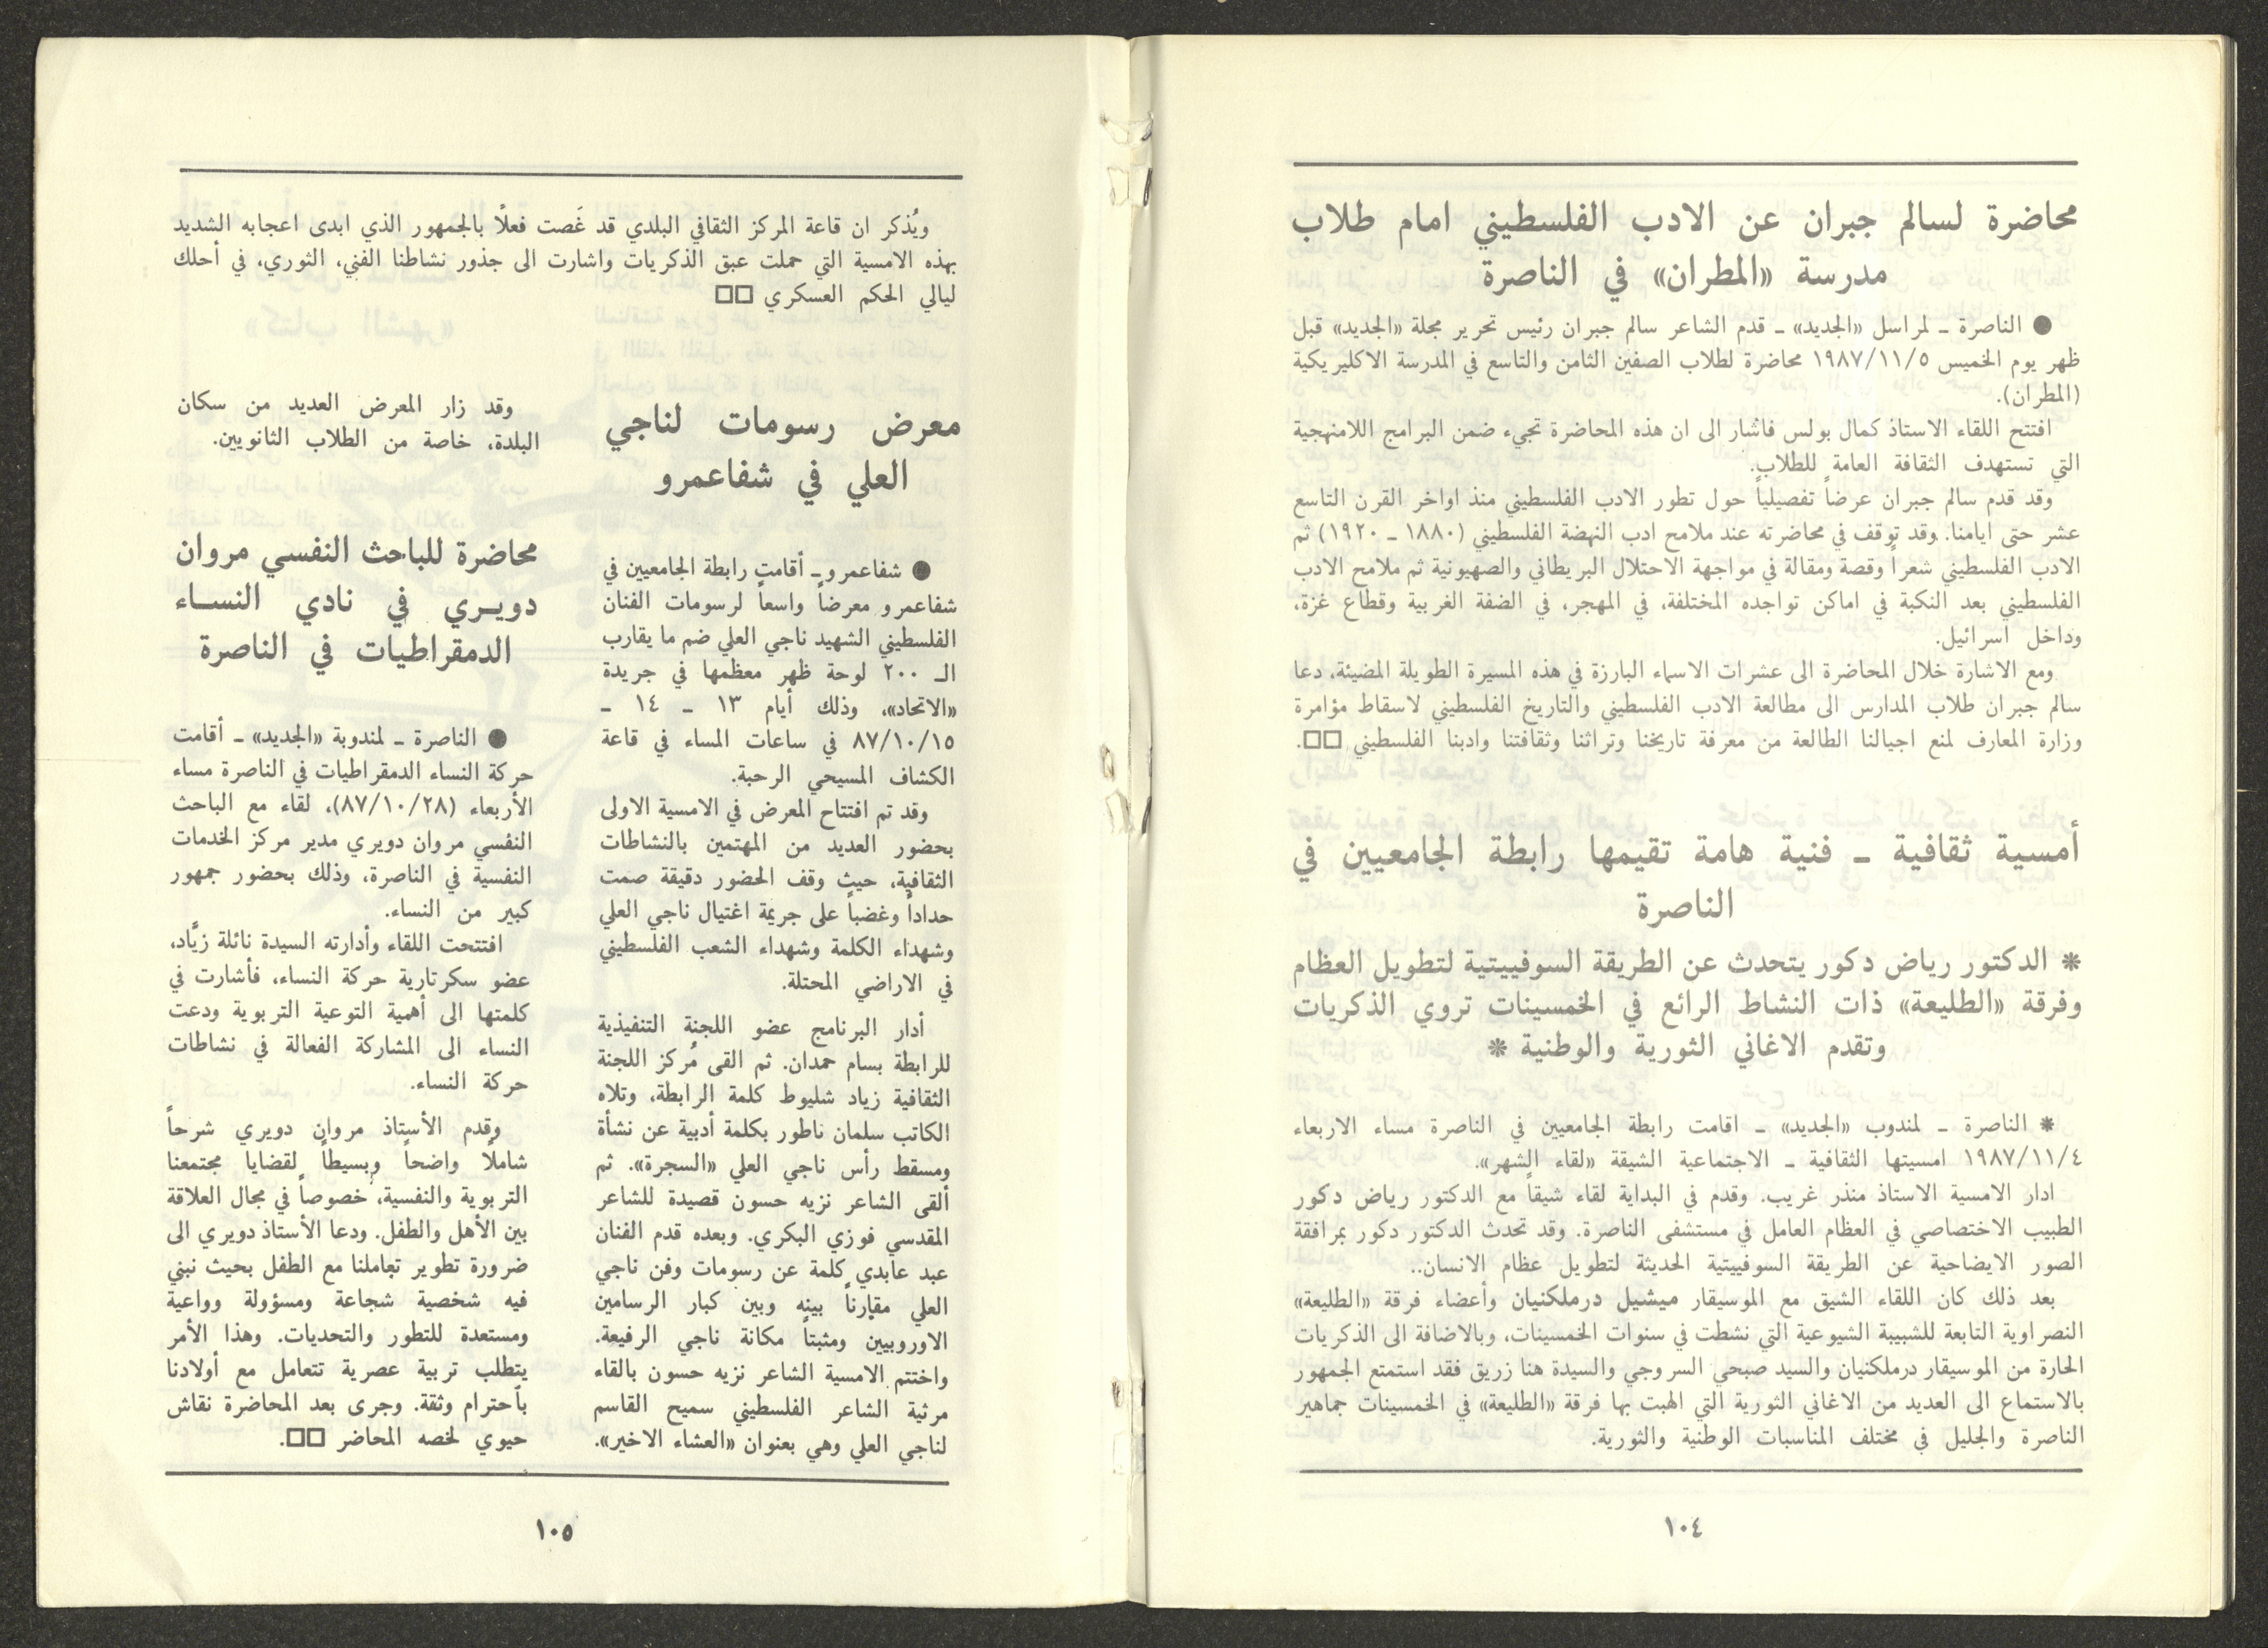 محاضرة لسالم جبران عن الادب الفلسطيني امام طلاب
مدرسة «المطران» في الناصرة
● الناصرة ـ لمراسل «الجديد» ـ قدم الشاعر سالم جبران رئيس تحرير مجلة «الجديد» قبل
ظهر يوم الخميس ١٩٨٧/١١/٥ محاضرة لطلاب الصفين الثامن والتاسع في المدرسة الاكليريكية
(المطران).
افتتح اللقاء الاستاذ كمال بولس فاشار الى ان هذه المحاضرة تجيء ضمن البرامج اللامنهجية
التي تستهدف الثقافة العامة للطلاب.
وقد قدم سالم جبران عرضاً تفصيلياً حول تطور الادب الفلسطيني منذ اواخر القرن التاسع
عشر حتى ايامنا. وقد توقف في محاضرته عند ملامح ادب النهضة الفلسطيني (١٨٨٠ ـ ١٩٢٠) ثم
الادب الفلسطيني شعراً وقصة ومقالة في مواجهة الاحتلال البريطاني والصهيونية ثم ملامح الادب
الفلسطيني بعد النكبة في اماكن تواجده المختلفة، في المهجر، في الضفة الغربية وقطاع غزة،
وداخل اسرائيل.
ومع الاشارة خلال المحاضرة الى عشرات الاسماء البارزة في هذه المسيرة الطويلة المضيئة، دعا
سالم جبران طلاب المدارس الى مطالعة الادب الفلسطيني والتاريخ الفلسطيني لاسقاط مؤامرة
وزارة المعارف لمنع اجيالنا الطالعة من معرفة تاريخنا وتراثنا وثقافتنا وادبنا الفلسطيني □□.
أمسية ثقافية ـ فنية هامة تقيمها رابطة الجامعيين في
الناصرة
* الدكتور رياض دكور يتحدث عن الطريقة السوفييتية لتطويل العظام
وفرقة «الطليعة» ذات النشاط الرائع في الخمسينات تروي الذكريات
وتقدم الاغاني الثورية والوطنية *
* الناصرة ـ لمندوب «الجديد» ـ اقامت رابطة الجامعيين في الناصرة مساء الاربعاء
١٩٨٧/١١/٤ امسيتها الثقافية ـ الاجتماعية الشيقة «لقاء الشهر».
ادار الامسية الاستاذ منذر غريب. وقدم في البداية لقاء شيقاً مع الدكتور رياض دكور
الطبيب الاختصاصي في العظام العامل في مستشفى الناصرة. وقد تحدث الدكتور دكور بمرافقة
الصور الايضاحية عن الطريقة السوفييتية الحديثة لتطويل عظام الانسان..
بعد ذلك كان اللقاء الشيق مع الموسيقار ميشيل درملكنيان وأعضاء فرقة «الطليعة»
النصراوية التابعة للشبيبة الشيوعية التي نشطت في سنوات الخمسينات، وبالاضافة الى الذكريات
الحارة من الموسيقار درملكنيان والسيد صبحي السروجي والسيدة هنا زريق فقد استمتع الجمهور
بالاستماع الى العديد من الاغاني الثورية التي الهبت بها فرقة «الطليعة» في الخمسينات جماهير
الناصرة والجليل في مختلف المناسبات الوطنية والثورية.
١٠٤
ويُذكر ان قاعة المركز الثقافي البلدي قد غَصت فعلاً بالجمهور الذي ابدى اعجابه الشديد
بهذه الامسية التي حملت عبق الذكريات واشارت الى جذور نشاطنا الفني، الثوري، في أحلك
ليالي الحكم العسكري □□
معرض رسومات لناجي
العلي في شفاعمرو
● شفاعمرو ـ أقامت رابطة الجامعيين في
شفاعمرو معرضاً واسعاً لرسومات الفنان
الفلسطيني الشهيد ناجي العلي ضم ما يقارب
الـ ٢٠٠ لوحة ظهر معظمها في جريدة
«الاتحاد»، وذلك أيام ١٣ ـ ١٤ ـ
٨٧/١٠/١٥ في ساعات المساء في قاعة
الكشاف المسيحي الرحبة.
وقد تم افتتاح المعرض في الامسية الاولى
بحضور العديد من المهتمين بالنشاطات
الثقافية، حيث وقف الحضور دقيقة صمت
حداداً وغضباً على جريمة اغتيال ناجي العلي
وشهداء الكلمة وشهداء الشعب الفلسطيني
في الاراضي المحتلة.
أدار البرنامج عضو اللجنة التنفيذية
للرابطة بسام حمدان. ثم القى مُركز اللجنة
الثقافية زياد شليوط كلمة الرابطة، وتلاه
الكاتب سلمان ناطور بكلمة أدبية عن نشأة
ومسقط رأس ناجي العلي «السجرة». ثم
ألقى الشاعر نزيه حسون قصيدة للشاعر
المقدسي فوزي البكري. وبعده قدم الفنان
عبد عابدي كلمة عن رسومات وفن ناجي
العلي مقارناً بينه وبين كبار الرسامين
الاوروبيين ومثبتاً مكانة ناجي الرفيعة.
واختتم الامسية الشاعر نزيه حسون بالقاء
مرثية الشاعر الفلسطيني سميح القاسم
لناجي العلي وهي بعنوان «العشاء الاخير».
وقد زار المعرض العديد من سكان
البلدة، خاصة من الطلاب الثانويين.
محاضرة للباحث النفسي مروان
دويـري في نادي النسـاء
الدمقراطيات في الناصرة
● الناصرة ـ لمندوبة «الجديد» ـ أقامت
حركة النساء الدمقراطيات في الناصرة مساء
الأربعاء (٨٧/١٠/٢٨)، لقاء مع الباحث
النفسي مروان دويري مدير مركز الخدمات
النفسية في الناصرة، وذلك بحضور جمهور
كبير من النساء.
افتتحت اللقاء وأدارته السيدة نائلة زيّاد،
عضو سكرتارية حركة النساء، فأشارت في
كلمتها الى أهمية التوعية التربوية ودعت
النساء الى المشاركة الفعالة في نشاطات
حركة النساء.
وقدم الأستاذ مروان دويري شرحاً
شاملاً واضحاً وبسيطاً لقضايا مجتمعنا
التربوية والنفسية، خصوصاً في مجال العلاقة
بين الأهل والطفل. ودعا الأستاذ دويري الى
ضرورة تطوير تعاملنا مع الطفل بحيث نبني
فيه شخصية شجاعة ومسؤولة وواعية
ومستعدة للتطور والتحديات. وهذا الأمر
يتطلب تربية عصرية تتعامل مع أولادنا
بأحترام وثقة. وجرى بعد المحاضرة نقاش
حيوي لخصه المحاضر □□.
١٠٥